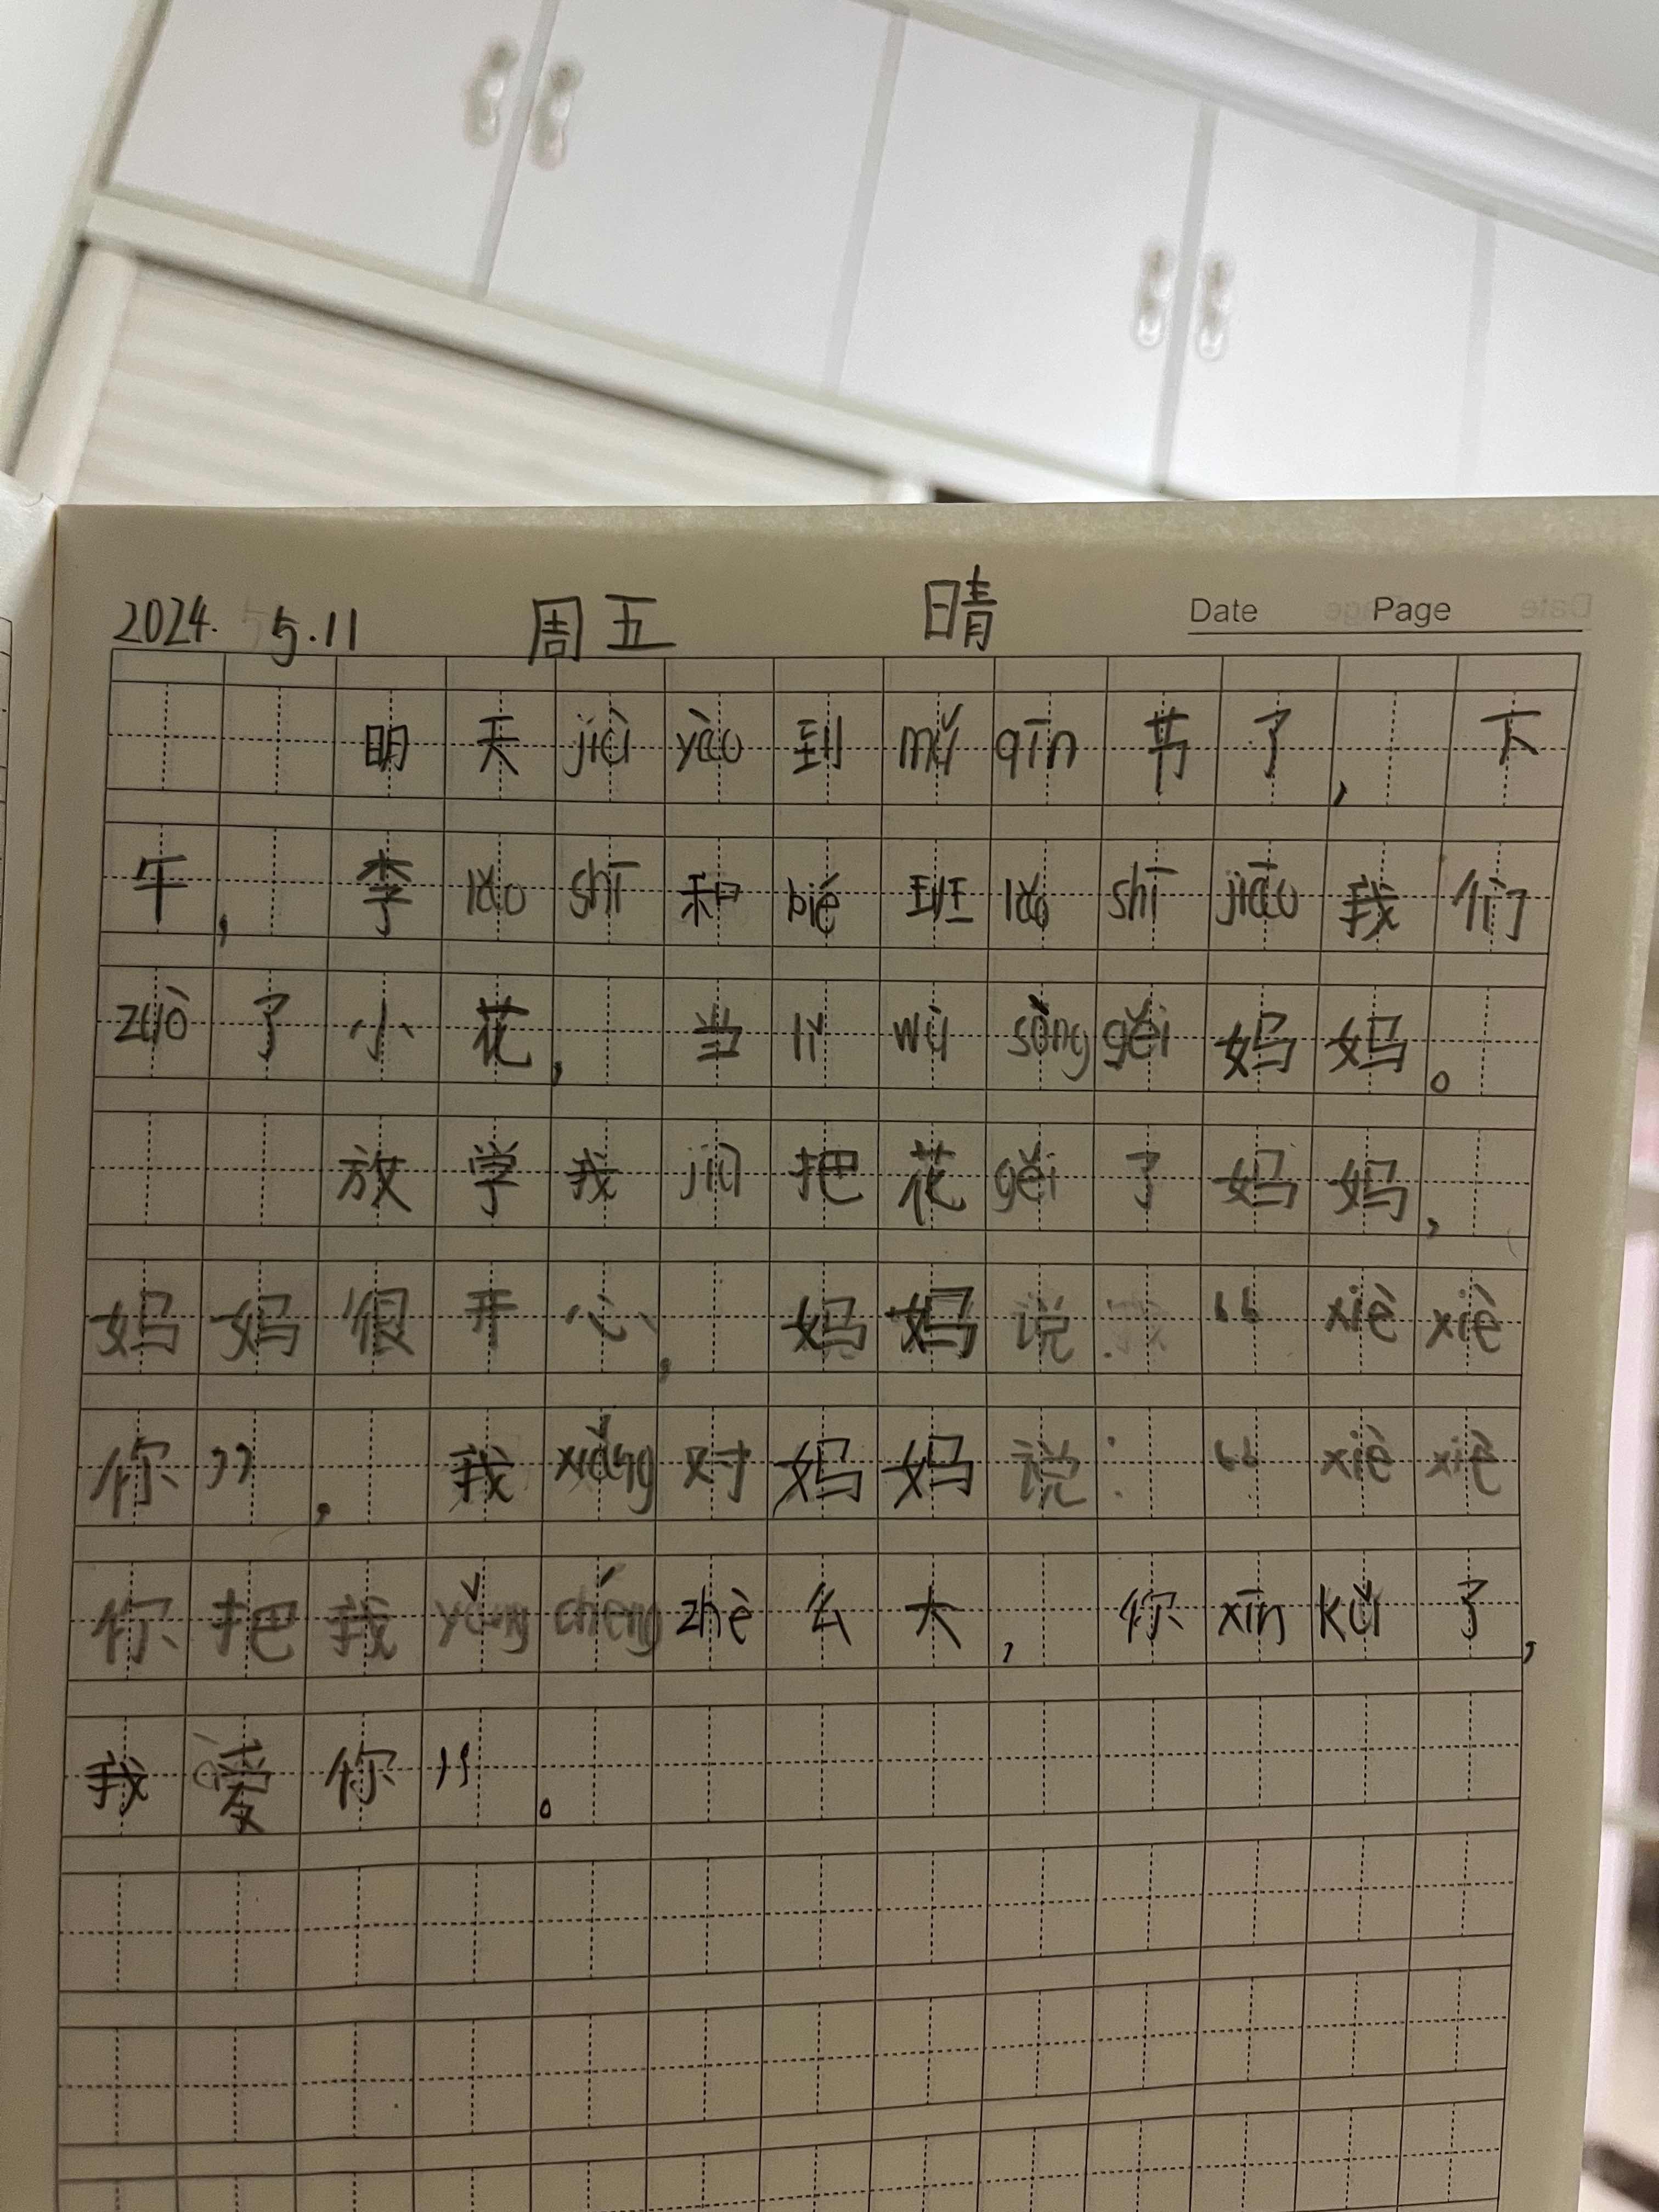 2024. 5.11 周五 晴 Date Page
明天 jiù yào 到 mǔ qīn 节了, 下
午, 李 lǎo shī 和 bié 班 lǎo shī jiāo 我们
zuò 了小花, 当 lǐ wù sòng gěi 妈妈。
放学我 jiù 把花 gěi 了妈妈,
妈妈很开心, 妈妈说: “ xiè xiè
你”, 我 xiǎng 对妈妈说: “ xiè xiè
你把我 yǎng chéng zhè 么大, 你 xīn kǔ 了,
我爱你”。